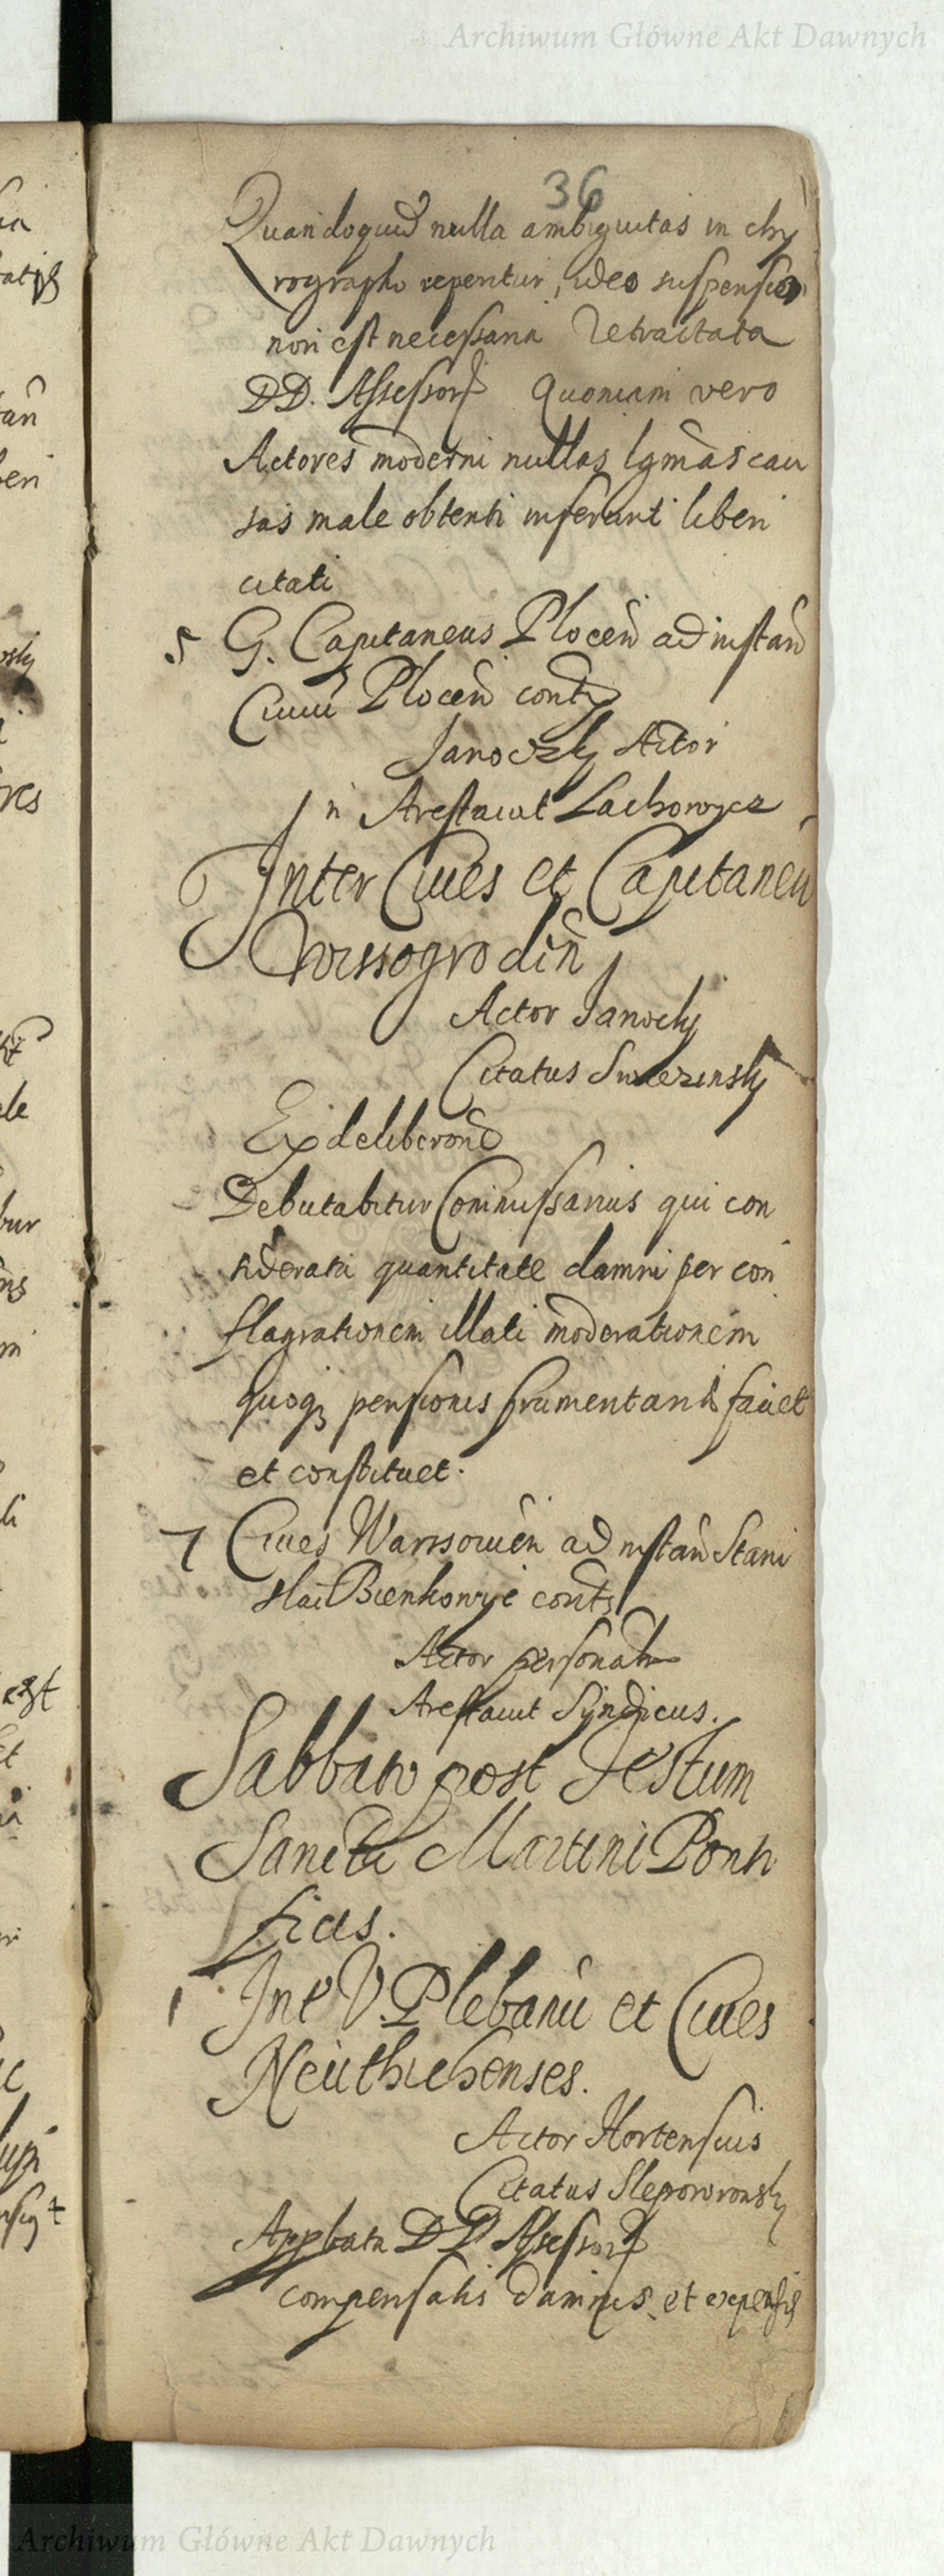 Archiwum Główne Akt Dawnych
36
Quandoquid nulla ambiguitas in chy
rographo reperitur, ideo suspensio
non est necessaria Retractata
DD. Assessorũ Quoniam vero
Actores moderni nullas lgmãs cau
sas male obtenti inferunt liberi
citati
5 G. Capitaneus Plocen̄ ad instan̄
Ciuiũ Plocen̄ cont̃
Janoczky Actor
n Arestauit Lachowycz
Inter Ciues et Capitaneũ
Wissogrodin̄
Actor Janocky
Citatus Swiezinsky
Ex deliberon̄e
Debutabitur Commissarius qui con
siderata quantitate damni per con
flagrationem illati moderationem
quoq3 pensionis frumentariae faciet
et constituet.
7 Ciues Warssouien̄ ad instan̄ Stani
slai Bienkowye cont̃
Actor personatr
Arestauit Syndicus.
Sabbato post Festum
Sancti Martini Ponti
ficis.
1 Int V. Plebanũ et Ciues
Neuthichenses.
Actor Hortensius
Citatus Sleporonsky
Appbata DD Assessorũ
compensatis damnis et expensis
Archiwum Główne Akt Dawnych